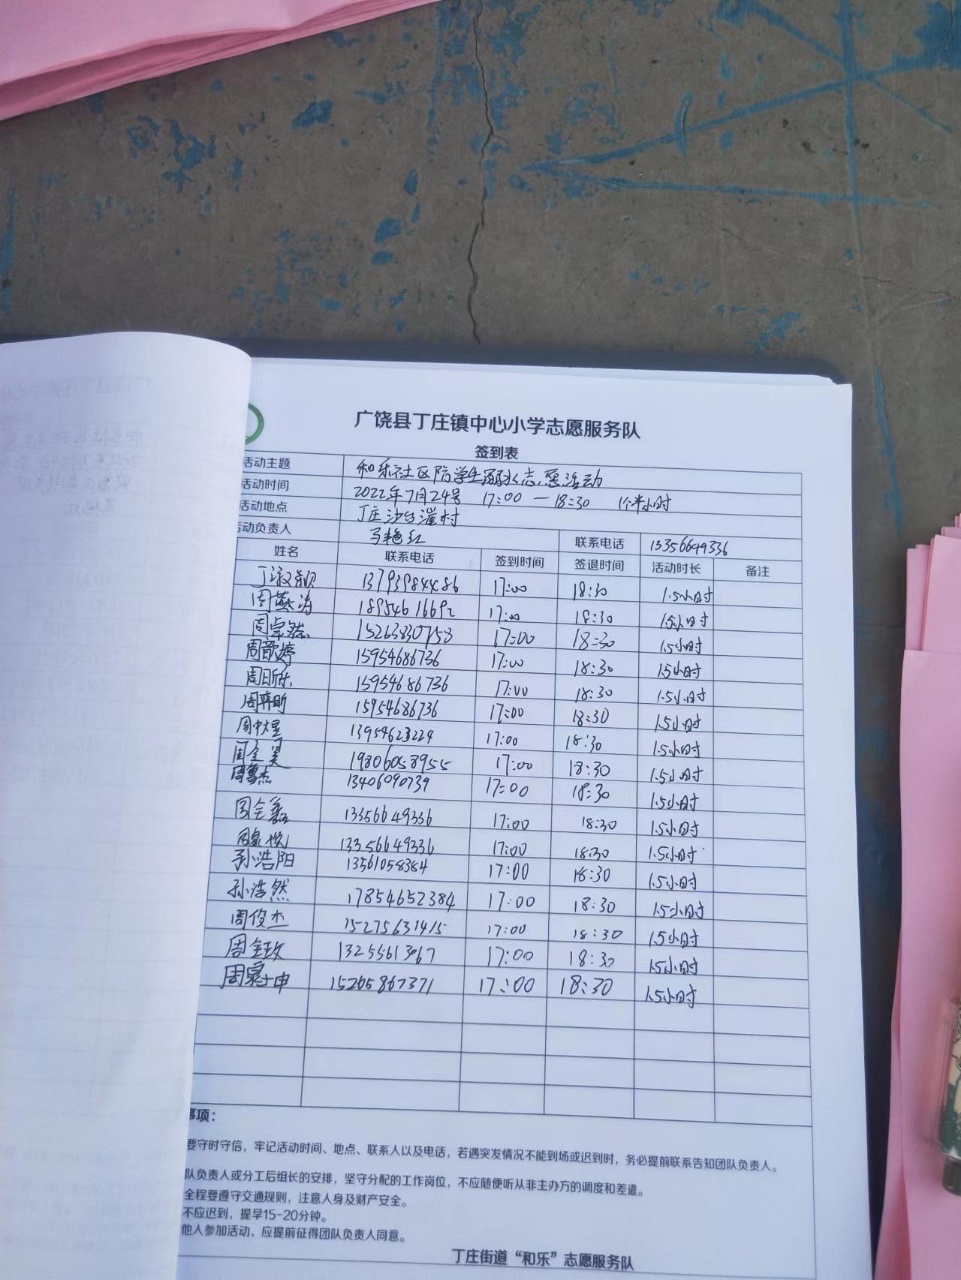 广饶县丁庄镇中心小学志愿服务队
签到表
活动主题 和乐社区防学生溺水志愿活动
活动时间 2022年7月24号 17:00 — 18:30 1个半小时
活动地点 丁庄沙台灌村
动负责人 马艳红 联系电话 13356649336
姓名 联系电话 签到时间 签退时间 活动时长 备注
17:00 18:30 1.5小时
17:00 18:30 1.5小时
周卓然 15263830753 17:00 18:30 1.5小时
周歆婷 15954686736 17:00 18:30 1.5小时
15954686736 17:00 18:30 1.5小时
15954686736 17:00 18:30 1.5小时
17:00 18:30 1.5小时
周金昊 19806058955 17:00 18:30 1.5小时
13406090739 17:00 18:30 1.5小时
周金鑫 13356649336 17:00 18:30 1.5小时
13356649336 17:00 18:30 1.5小时
孙浩阳 13561058384 17:00 18:30 1.5小时
孙浩然 17854652384 17:00 18:30 1.5小时
周俊杰 15275631415 17:00 18:30 1.5小时
周金玫 17:00 18:30 1.5小时
15265867371 17:00 18:30 1.5小时
事项:
要守时守信，牢记活动时间、地点、联系人以及电话，若遇突发情况不能到场或迟到时，务必提前联系告知团队负责人。
队负责人或分工后组长的安排，坚守分配的工作岗位，不应随便听从非主办方的调度和差遣。
全程要遵守交通规则，注意人身及财产安全。
不应迟到，提早15-20分钟。
他人参加活动，应提前征得团队负责人同意。
丁庄街道“和乐”志愿服务队